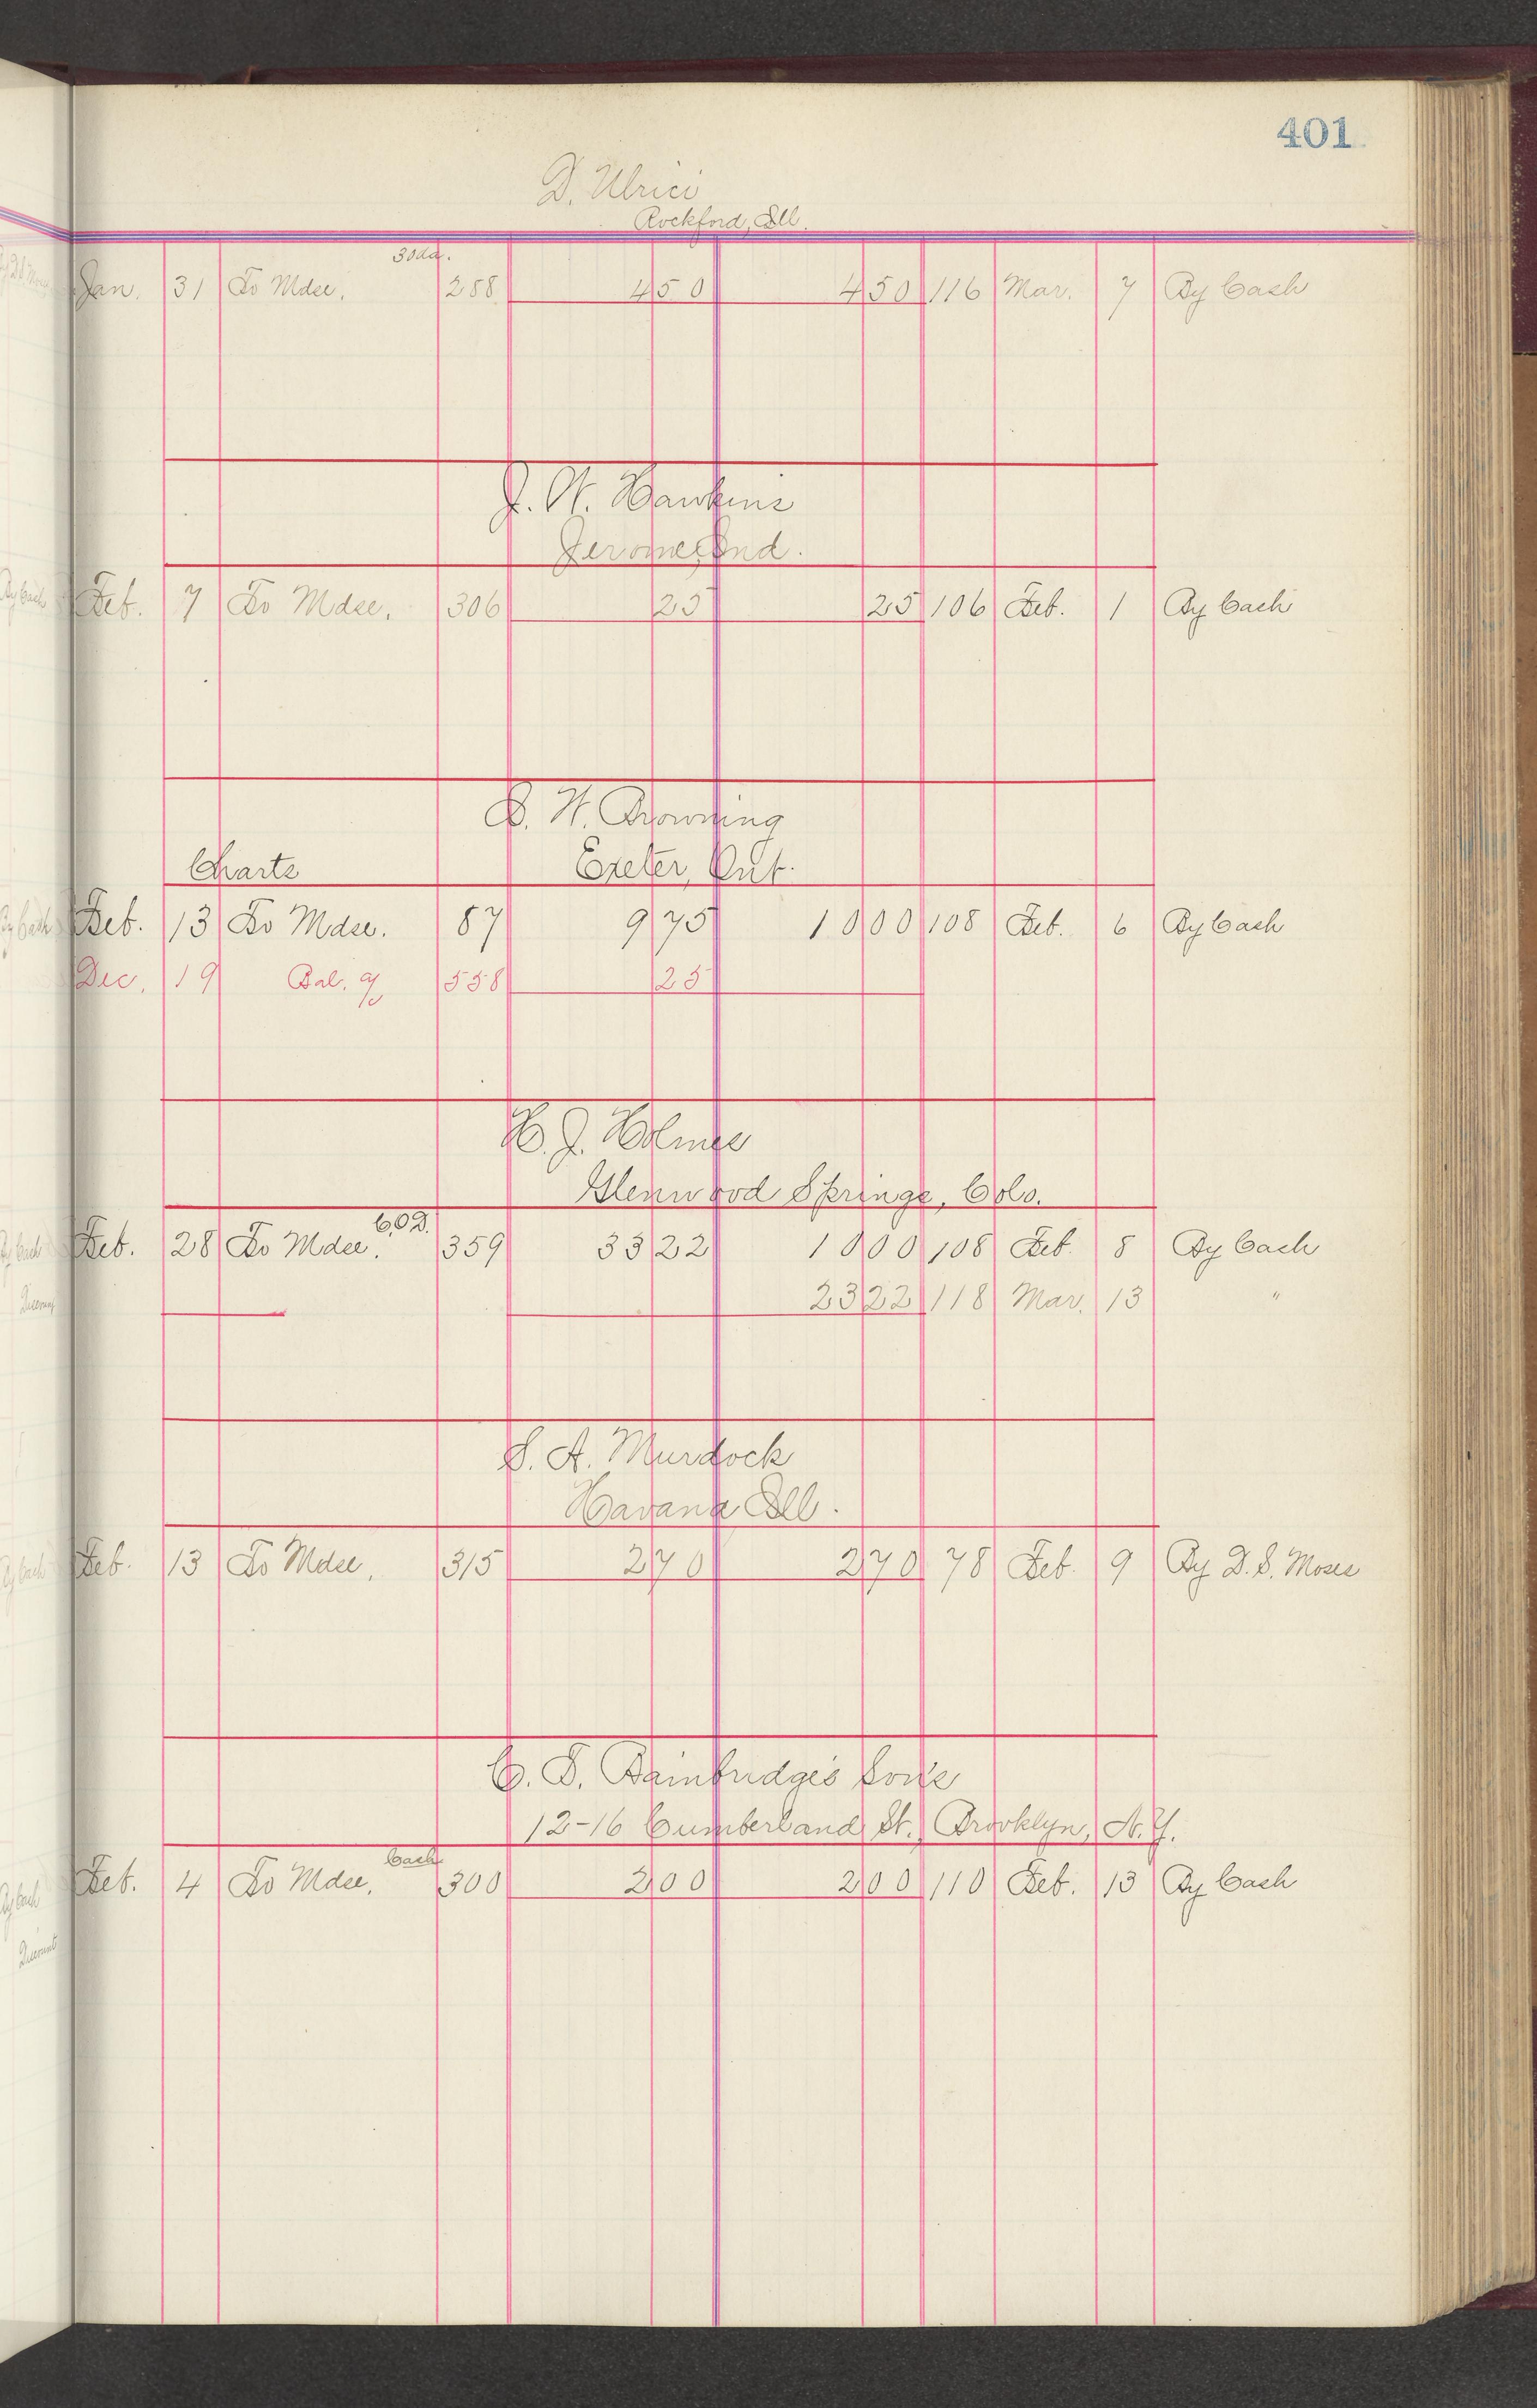 401
D. Ulrici
Rockford, Ill.
30da.
Jan. 31 To Mdse. 288 4 50 4 50 116 Mar. 7 By Cash
J. W. Hawkins
Jerome, Ind.
Feb. 7 To Mdse. 306 25 25 106 Feb. 1 By Cash
Browning
Charts Exeter, Ont.
Feb. 13 To Mdse. 87 9 75 10 00 108 Feb. 6 By Cash
Dec. 19 Bal. 558 25
H. J. Holmes
Glenwood Springs, Colo.
C.O.D.
Feb. 28 To Mdse. 359 33 22 10 00 108 Feb. 8 By Cash
23 22 118 Mar. 13 "
S. A. Murdock
Havana Ill.
Feb. 13 To Mdse. 315 2 70 2 70 78 Feb. 9 By D. S. Moses
C. T. Bainbridge's Son's
12-16 Cumberland St., Brooklyn, N.Y.
Cash
Feb. 4 To Mdse. 300 2 00 2 00 110 Feb. 13 By Cash